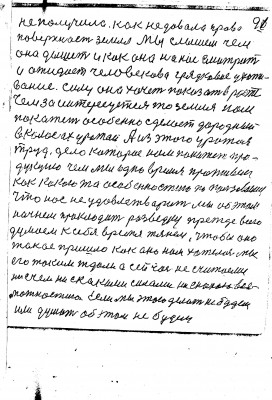 не получило, как недовала право
поверхност земля Мы слышем чем
она дышет и как она на нас смотрит
и ожидает человекова грядковае ухажи-
вание. силу она хочет показать в росте
чем заинтересуется то земля нам
покажет особенно сделает дародный
в колосах урожай А из этого урожая
труд, дело которое нам покажет про-
дукцию чем мы одно время
как какое то особенностью по признанию
что нос не удовлетварит. мы об этом
начнем проводит разведку прежде всего
думаем к себя время тянем, чтобы оно
такое пришло как оно нам хотелось. мы
его таким ждали а сейчас не считаемся
ни с чем ни с какими силами ни с какою воз-
можностию. Если мы этого делат не будем
или думат об этом не будем